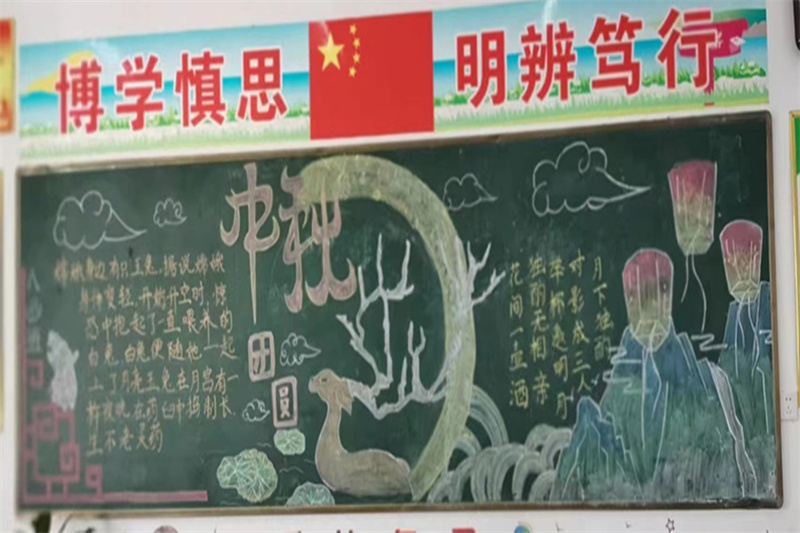 博学慎思 明辨笃行
中秋
团圓
嫦娥身边有只玉兔。据说嫦娥
身体变轻,开始升空时,惊
恐中抱起了一直喂养的
白兔。白兔便随她一起
上了月亮。玉兔在月宫有一
在药臼中捣制长
生不老灵药
月下独酌
花间一壶酒
独酌无相亲
举杯邀明月
对影成三人